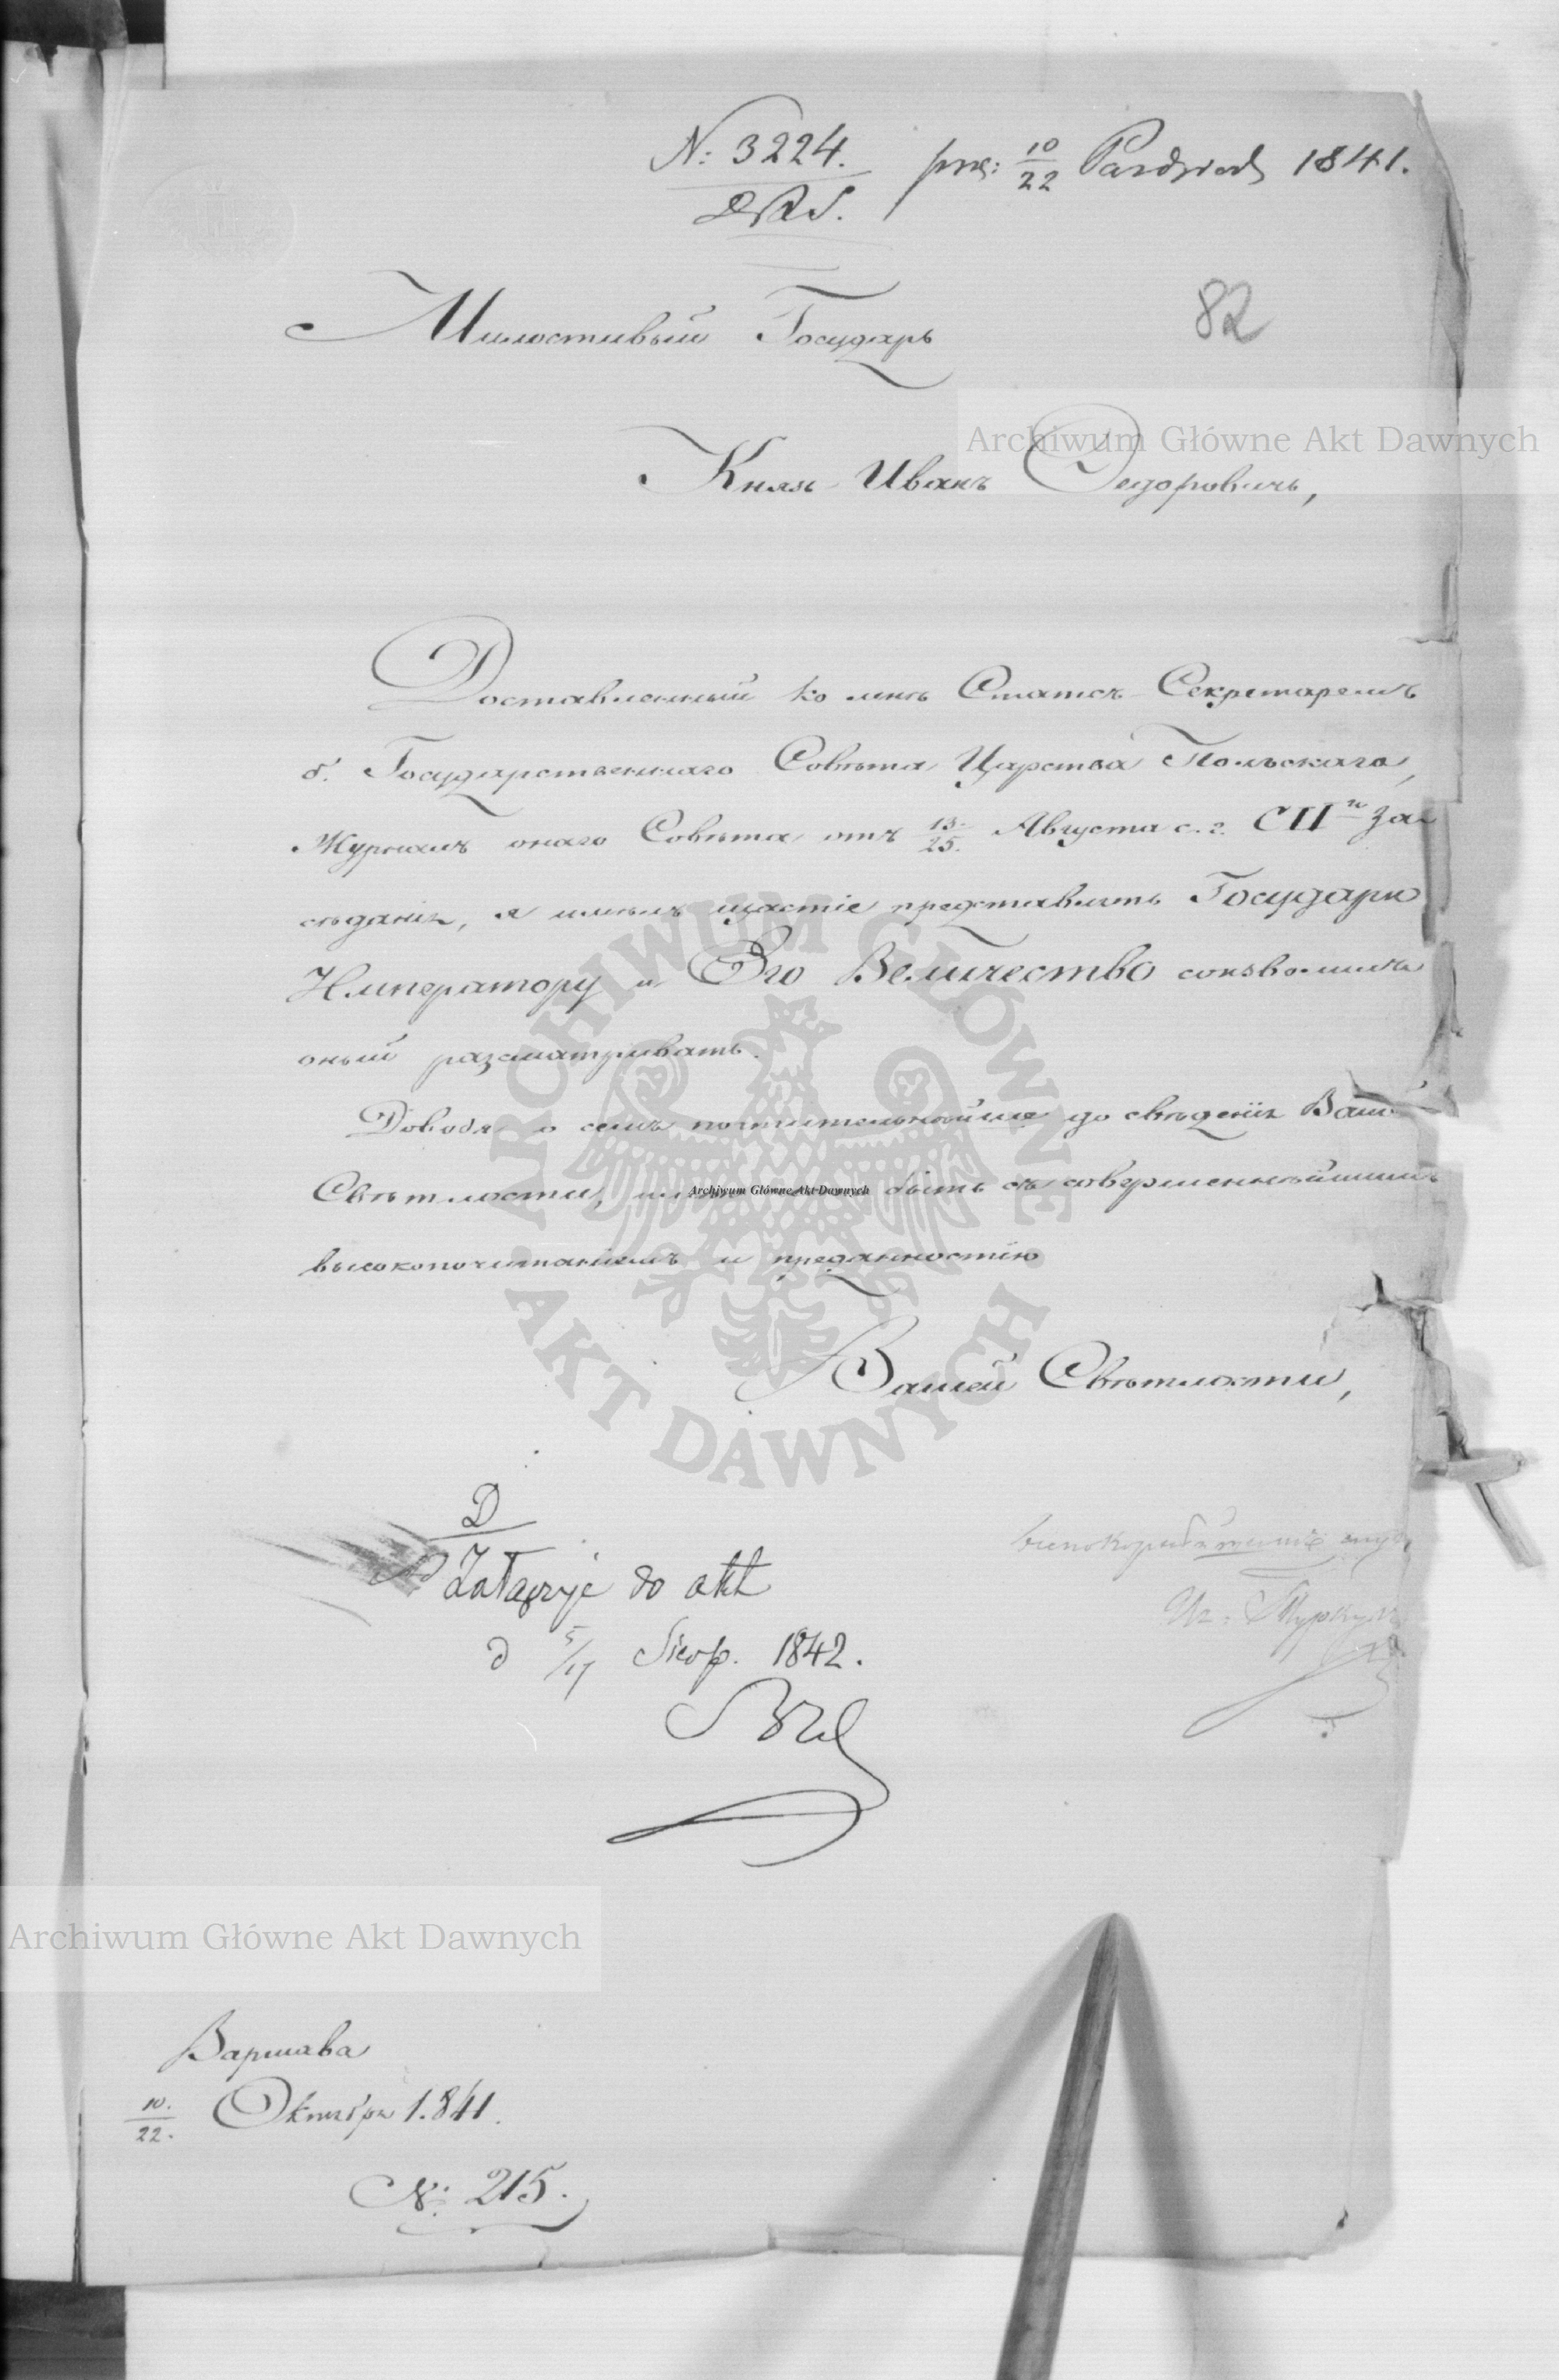 N: 3224. prez: 10/22 Paździer 1841.
82
Милостивый Государь
Князь Иванъ Федоровичъ,
Доставленный ко мнѣ Статсъ-Секретаремъ
б. Государственнаго Совѣта Царства Польскаго,
Журналъ онаго Совѣта отъ 13/25. Августа с. г. CIIго За-
сѣданія, я имѣлъ щастіе представлять Государю
Императору и Его Величество соизволилъ
оный разсматривать.
Доводя о семъ почтительнѣйше до свѣденія Вашей
Свѣтлости, имѣю быть съ совершеннѣйшимъ
высокопочитаніемъ и преданностію
Вашей Свѣтлости,
D
Załączyć do akt
d 5/17 Sierp. 1842.
Иг. Туркулъ
Варшава
10./22. Октября 1841.
№: 215.
Archiwum Główne Akt Dawnych
Archiwum Główne Akt Dawnych
Archiwum Główne Akt Dawnych
ARCHIWUM GŁÓWNE AKT DAWNYCH